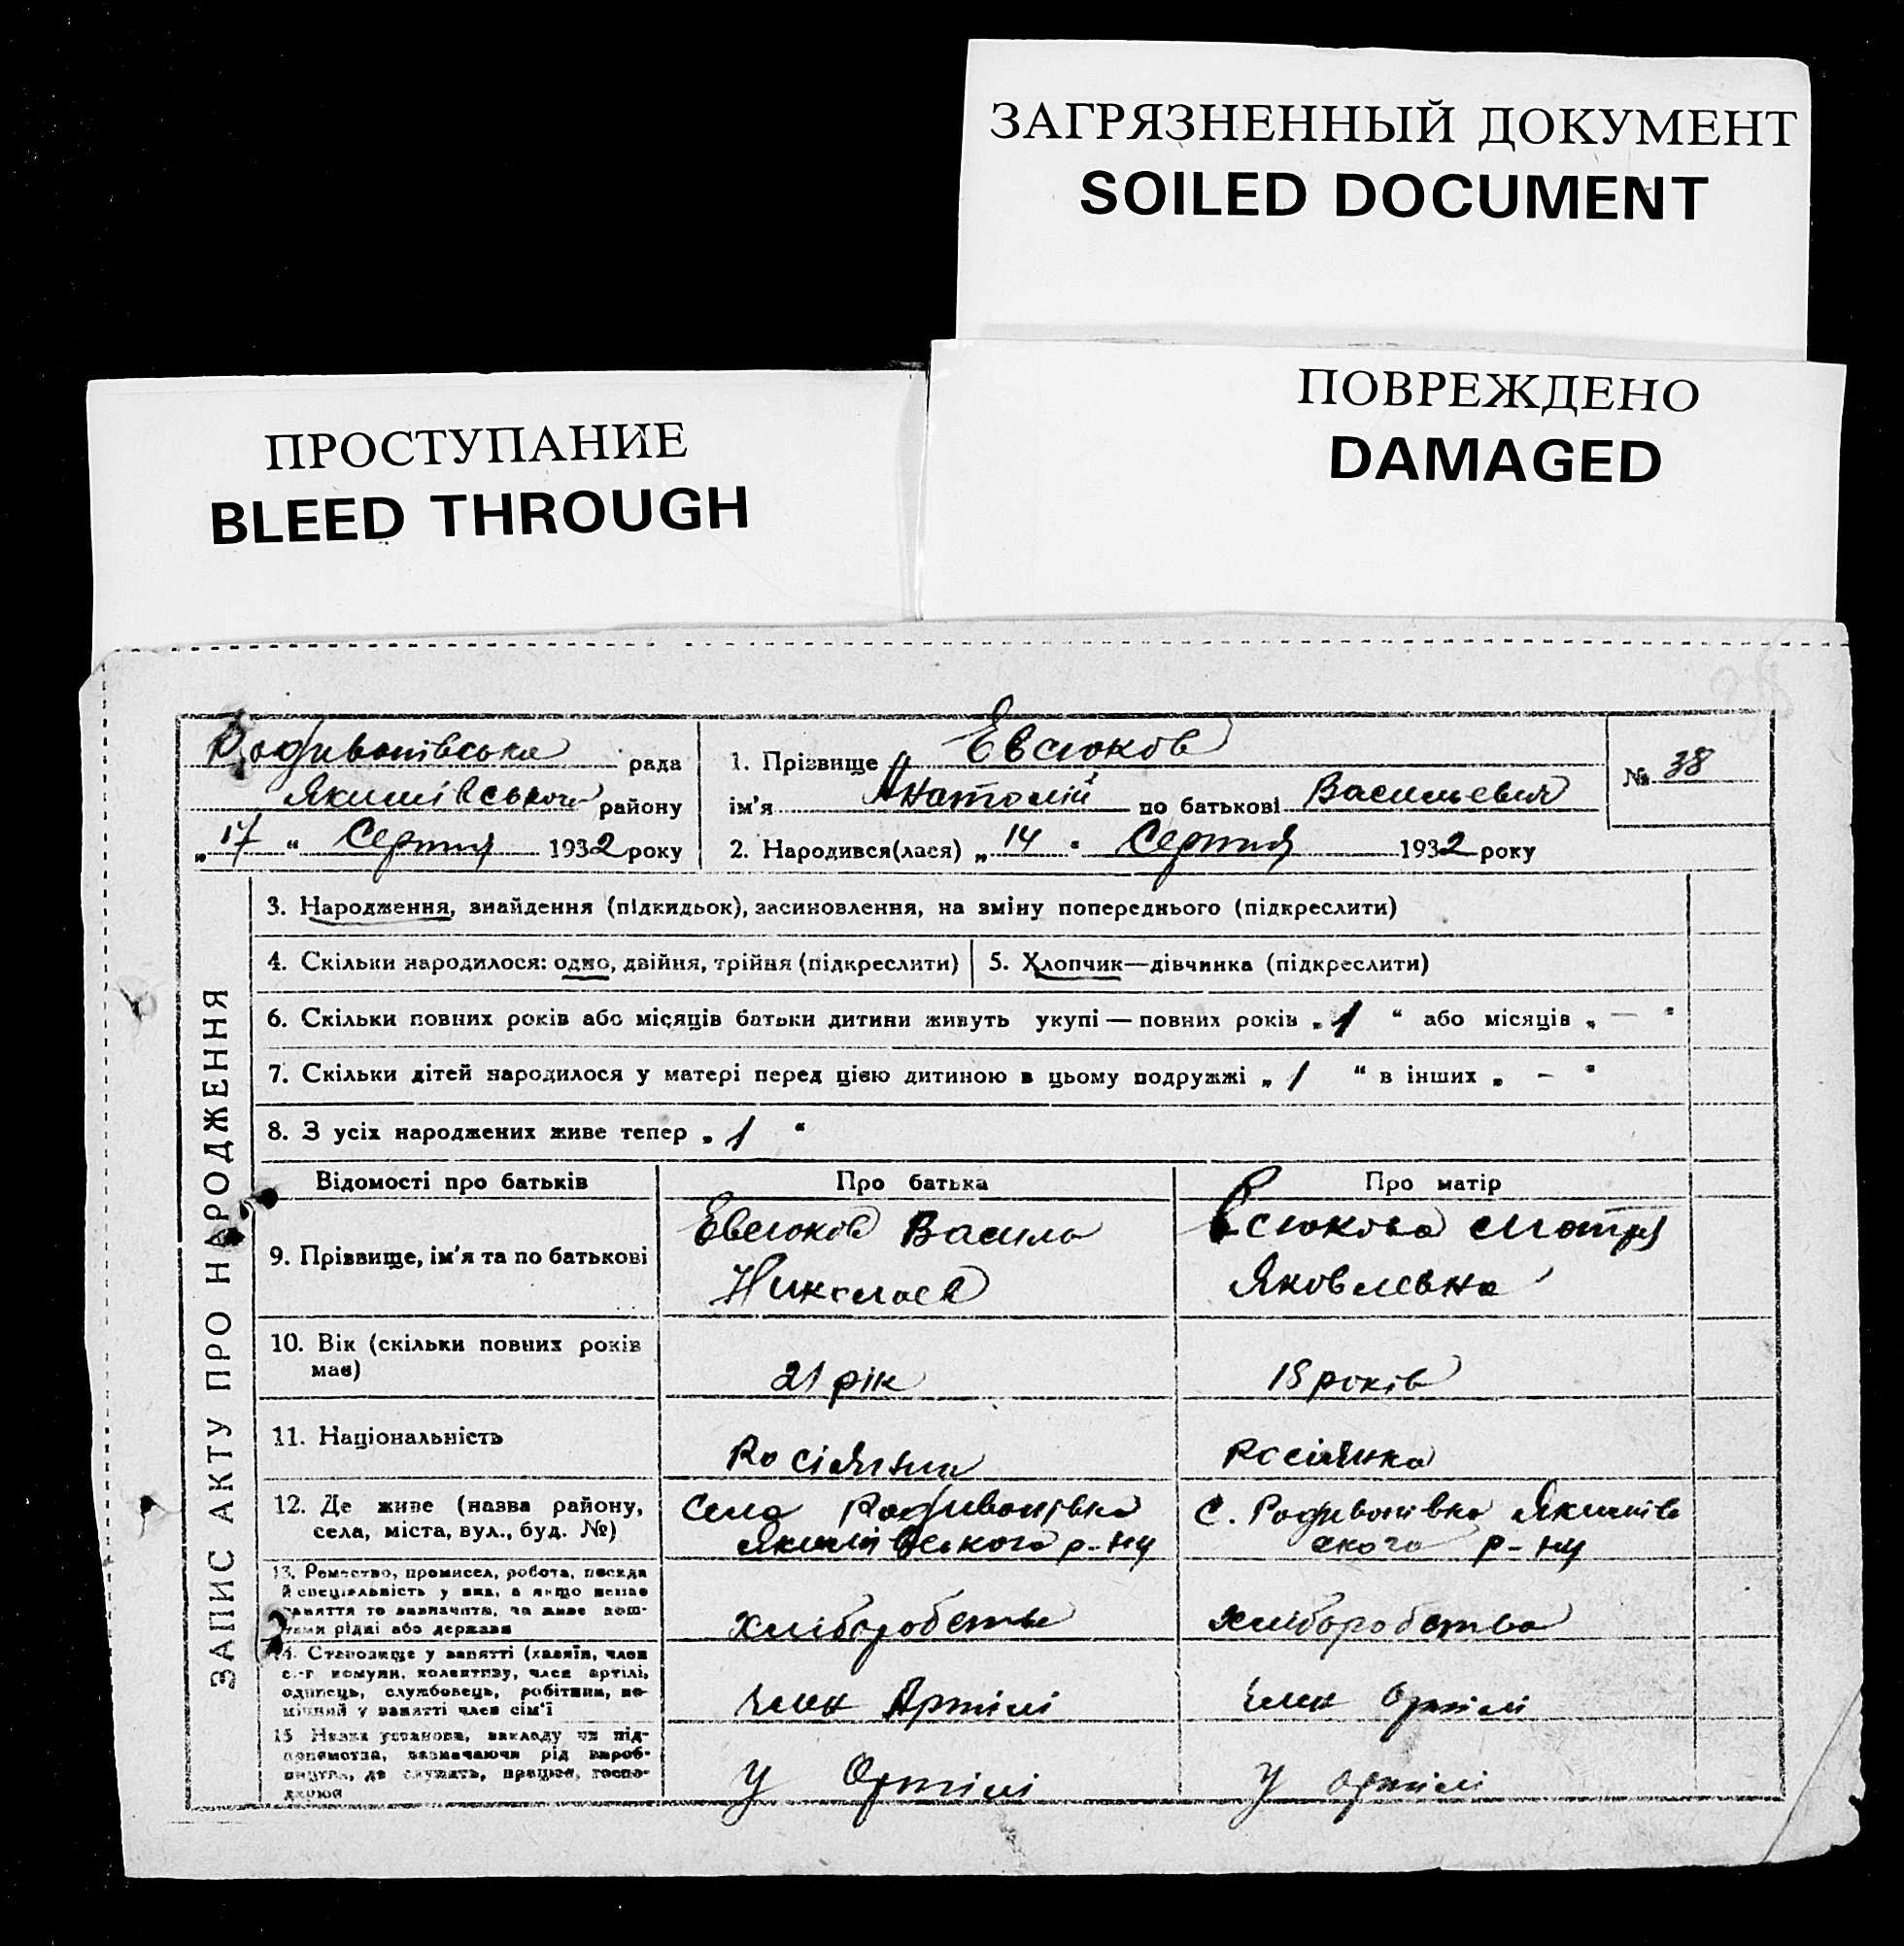 ЗАГРЯЗНЕННЫЙ ДОКУМЕНТ
SOILED DOCUMENT
ПОВРЕЖДЕНО
DAMAGED
ПРОСТУПАНИЕ
BLEED THROUGH
Родивонівська рада
Якимівського району
„ 17 “ Серпня 1932 року
1. Прізвище Евсюков
ім'я Анатолій по батькові Васильевич
2. Народився(лася) „ 14 “ Серпня 1932 року
№ 38
ЗАПИС АКТУ ПРО НАРОДЖЕННЯ
3. Народження, знайдення (підкидьок), засиновлення, на зміну попереднього (підкреслити)
4. Скільки народилося: одно, двійня, трійня (підкреслити)
5. Хлопчик—дівчинка (підкреслити)
6. Скільки повних років або місяців батьки дитини живуть укупі — повних років „ 1 “ або місяців „ — “
7. Скільки дітей народилося у матері перед цією дитиною в цьому подружжі „ 1 “ в інших „ - “
8. З усіх народжених живе тепер „ 1 “
Відомості про батьків Про батька Про матір
9. Прізвище, ім'я та по батькові
Евсюков Василь
Николаев
Есюкова Мотря
Яковлевна
10. Вік (скільки повних років
має)
21 рік
18 років
11. Національність
Росіянин
Росіянка
12. Де живе (назва району,
села, міста, вул., буд. №)
Село Родивонівка
Якимівського р-ну
с. Родивонівка Якимів
ского р-ну
13. Ремество, промисел, робота, посада
й спеціяльність у яка, а якщо немає
заняття то визначити, чи живе кош-
тами рідні або держави
хліборобство
хліборобство
14. Становище у занятті (хазяїн, член
с.-г. комуни, колективу, член артілі,
одинець, службовець, робітник, по-
мічний у занятті член сім'ї
член Артілі
член Артілі
15 Назва установи, закладу чи під-
приємства, зазначаючи рід вироб-
ництва, де служить, працює, госпо-
дарює
У Артілі
У артілі